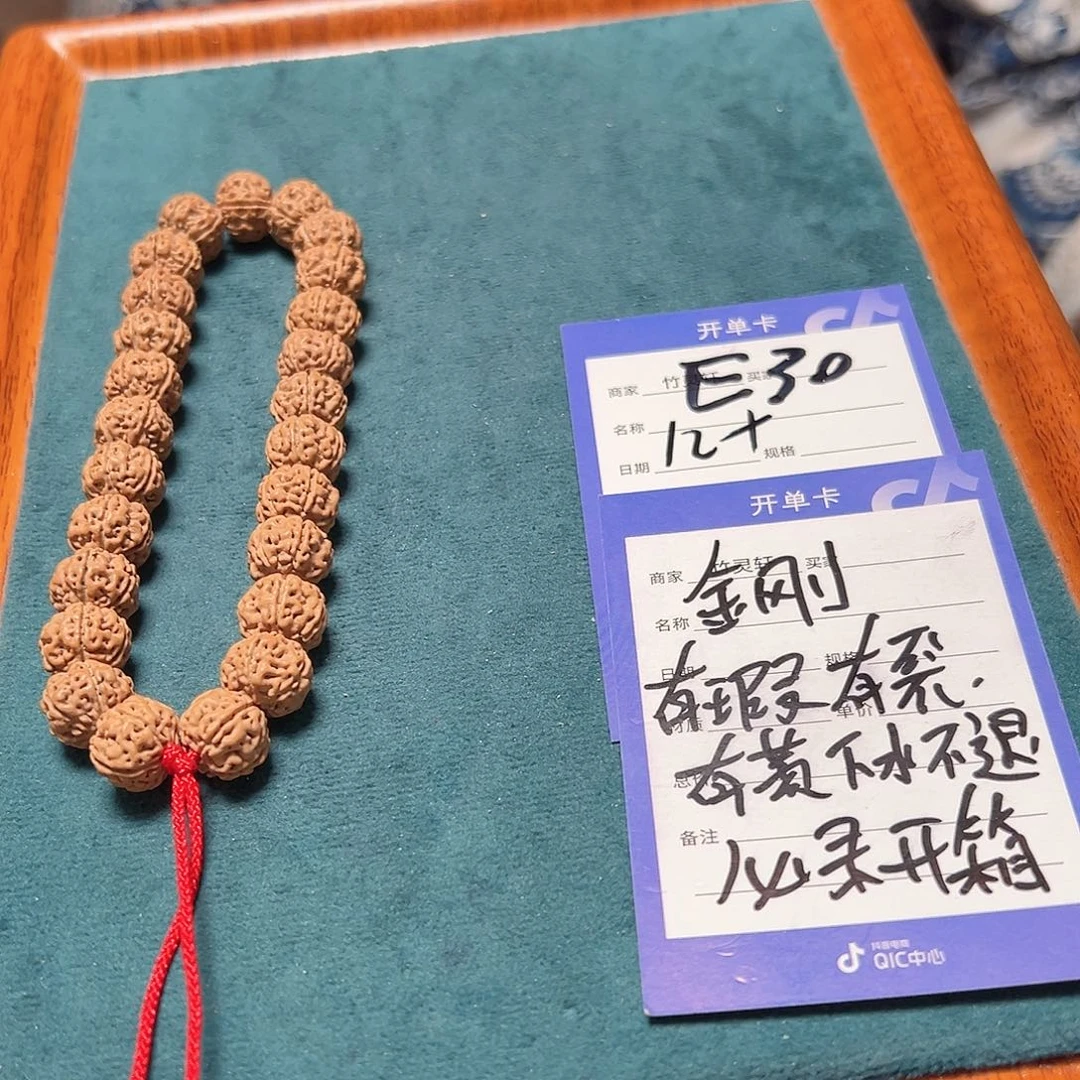 开单卡
商家 竹灵轩 买家
E30
名称
12+
日期 规格
开单卡
商家 竹灵轩 买家
金刚
名称
日期 规格
有瑕 有裂.
材质 单价
有黄 下水不退
备注
必录开箱
抖音电商
QIC中心